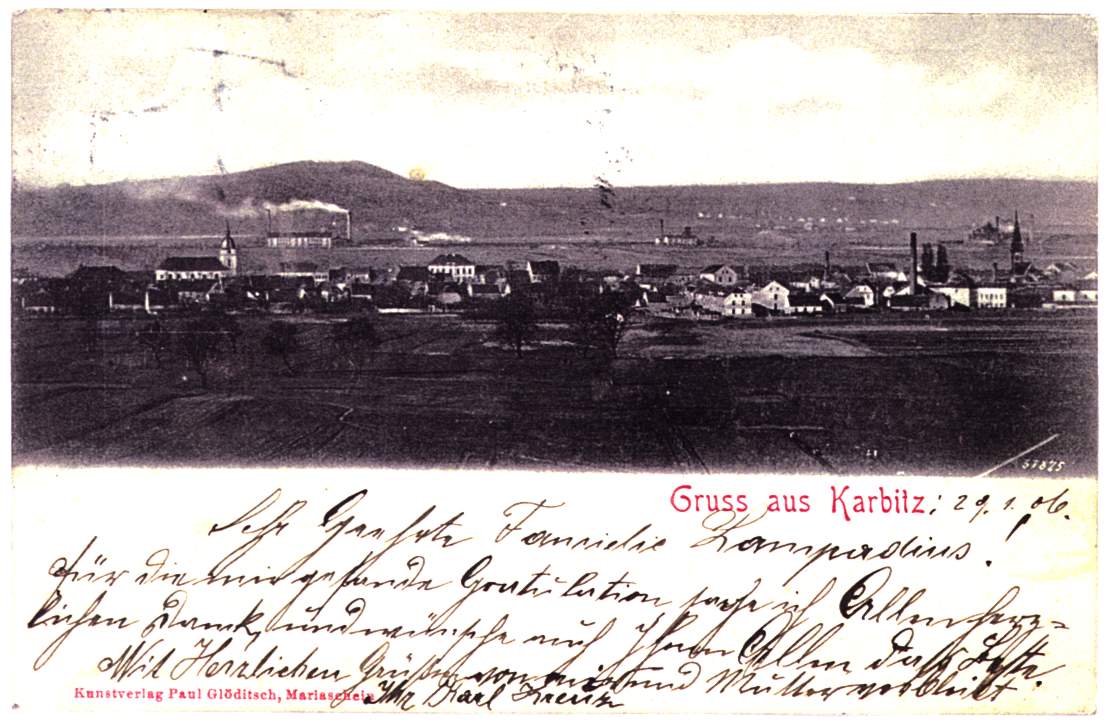 57875
Gruss aus Karbitz; 29. 1. 06.
Sehr Geehrte Familie Lampadius!
Für die mir gesande Gratulation sage ich Allen herz=
lichen Dank, und wünsche auch Ihnen Allen das Beste.
Mit Herzlichen Grüßen von mir und Mutter verbleibt
Kunstverlag Paul Glöditsch, Mariaschein
Ihr Karl